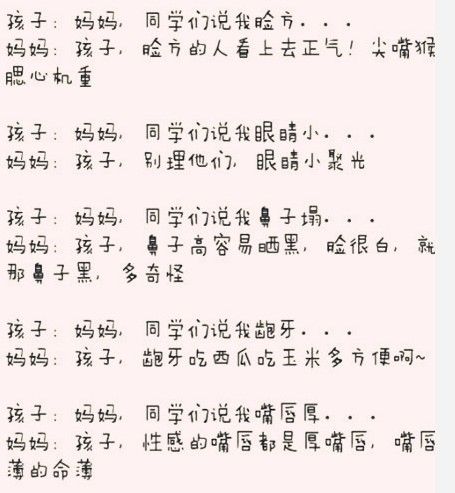 孩子：妈妈，同学们说我脸方...
妈妈：孩子，脸方的人看上去正气！尖嘴猴
腮心机重
孩子：妈妈，同学们说我眼睛小...
妈妈：孩子，别理他们，眼睛小聚光
孩子：妈妈，同学们说我鼻子塌...
妈妈：孩子，鼻子高容易晒黑，脸很白，就
那鼻子黑，多奇怪
孩子：妈妈，同学们说我龅牙...
妈妈：孩子，龅牙吃西瓜吃玉米多方便啊~
孩子：妈妈，同学们说我嘴唇厚...
妈妈：孩子，性感的嘴唇都是厚嘴唇，嘴唇
薄的命薄